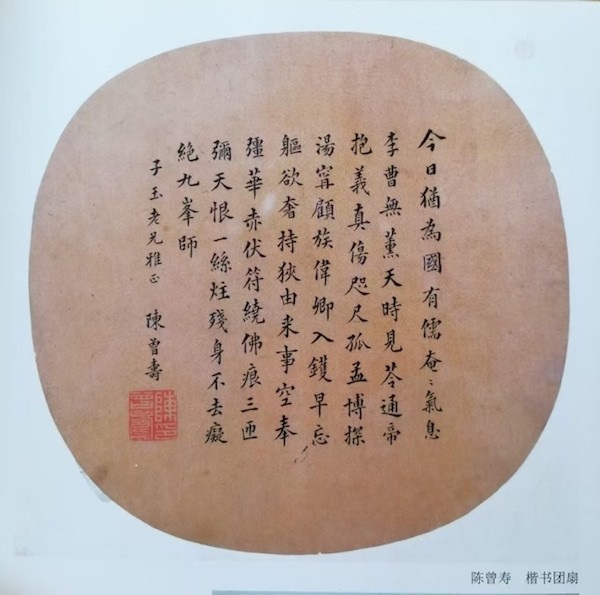 今日猶為國有儒奄〻氣息
李曹無薰天時見荅通帝
抱義真傷咫尺孤孟博探
湯寗顧族偉卿入鑊早忘
軀欲奢持狹由来事空奉
彊華赤伏符繞佛痕三匝
彌天恨一絲炷殘身不去癡
絕九峯師
子玉老兄雅正
陳曾壽
陳曾壽
陈曾寿 楷书团扇